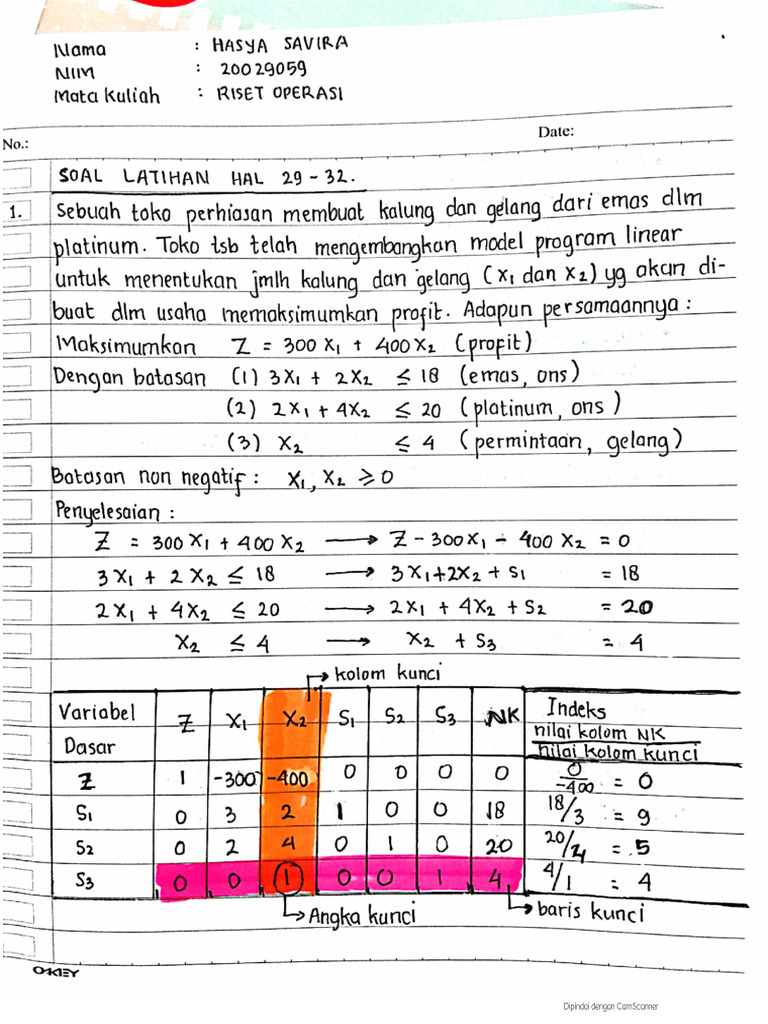 Nama : HASYA SAVIRA
NIM : 20029059
Mata Kuliah : RISET OPERASI
No.: Date:
SOAL LATIHAN HAL 29 - 32.
1. Sebuah toko perhiasan membuat kalung dan gelang dari emas dlm
platinum. Toko tsb telah mengembangkan model program linear
untuk menentukan jmlh kalung dan gelang (X₁ dan X₂) yg akan di-
buat dlm usaha memaksimumkan profit. Adapun persamaannya :
Maksimumkan Z = 300 X₁ + 400 X₂ (profit)
Dengan batasan (1) 3X₁ + 2X₂ ≤ 18 (emas, ons)
(2) 2X₁ + 4X₂ ≤ 20 (platinum, ons)
(3) X₂ ≤ 4 (permintaan, gelang)
Batasan non negatif : X₁, X₂ ≥ 0
Penyelesaian :
Z = 300 X₁ + 400 X₂ → Z - 300X₁ - 400 X₂ = 0
3X₁ + 2X₂ ≤ 18 → 3X₁+2X₂ + S₁ = 18
2X₁ + 4X₂ ≤ 20 → 2X₁ + 4X₂ + S₂ = 20
X₂ ≤ 4 → X₂ + S₃ = 4
→ kolom kunci
Variabel Dasar Z X₁ X₂ S₁ S₂ S₃ NK Indeks nilai kolom NK / nilai kolom kunci
Z 1 -300 -400 0 0 0 0 0/-400 = 0
S₁ 0 3 2 1 0 0 18 18/3 = 9
S₂ 0 2 4 0 1 0 20 20/4 = 5
S₃ 0 0 1 0 0 1 4 4/1 = 4
→ Angka kunci → baris kunci
OKEY
Dipindai dengan CamScanner